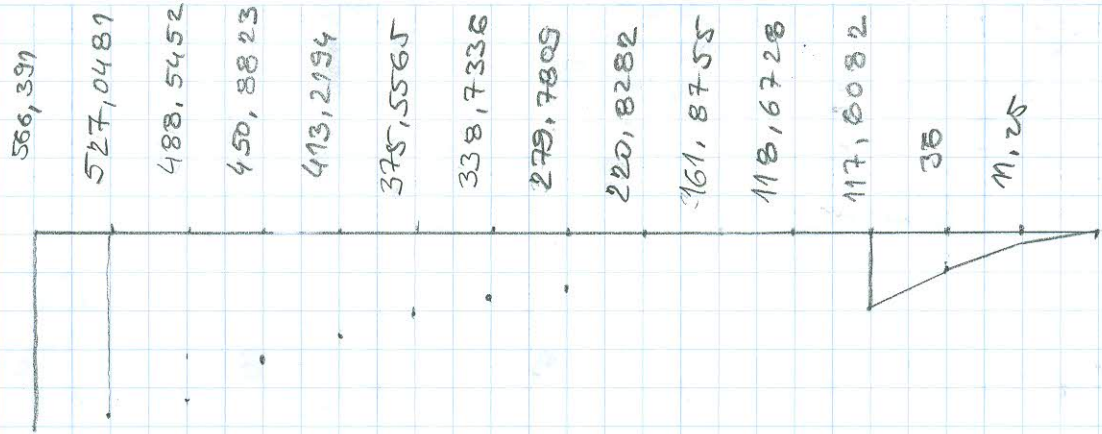 566,391
527,0481
488,5452
450,8823
413,2194
375,5565
338,7336
279,7809
220,8282
161,8755
118,6728
117,6082
36
11,25